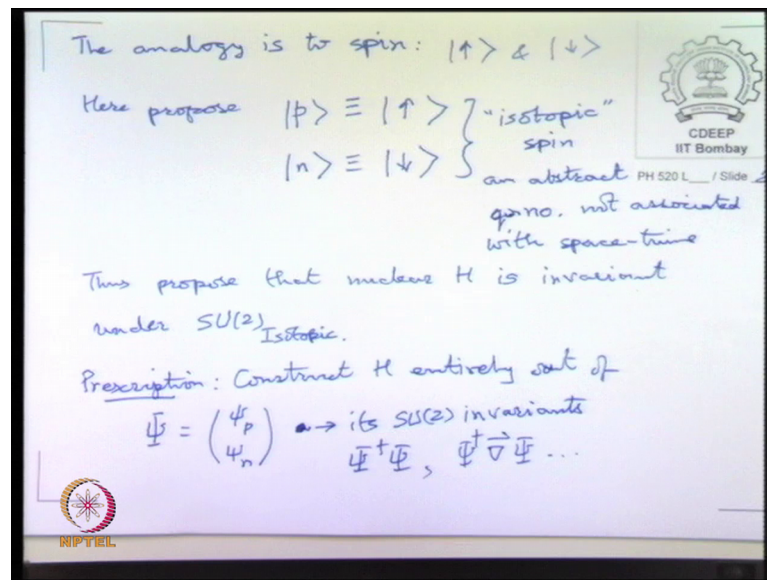 The analogy is to spin: |↑> & |↓>
Here propose |p> ≡ |↑> } "isotopic"
spin
|n> ≡ |↓>
an abstract
q. no. not associated
with space-time
CDEEP
IIT Bombay
PH 520 L___ / Slide 2
Thus propose that nuclear H is invariant
under SU(2) Isotopic.
Prescription: Construct H entirely out of
Ψ = (ψp ψn) → its SU(2) invariants
Ψ†Ψ, Ψ†∇⃗Ψ ...
NPTEL